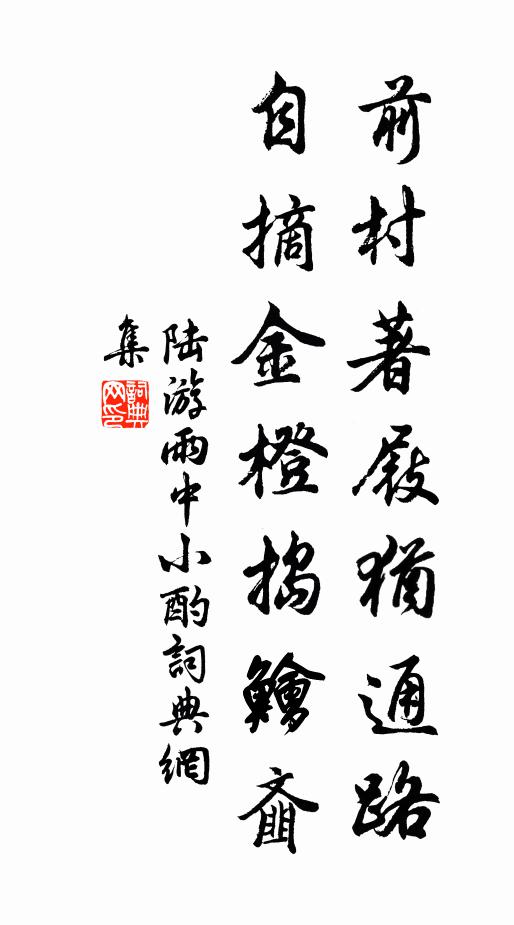 前村著屐猶通路
自摘金橙搗鱠齏
陸游雨中小酌詞典網
集
詞典
网印